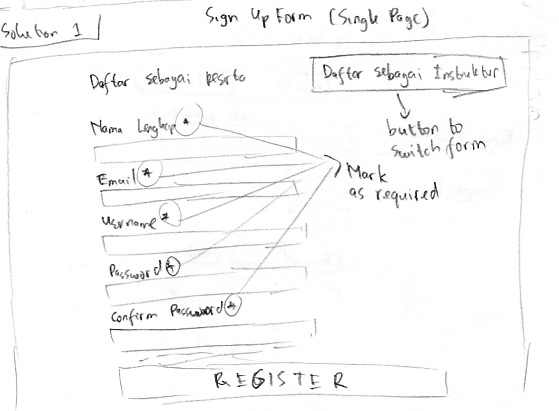 Solution 1
Sign Up Form (Single Page)
Daftar sebagai peserta
Daftar sebagai Instruktur
button to
switch form
Nama Lengkap *
Mark
as required
Email *
Username *
Password *
Confirm Password *
REGISTER